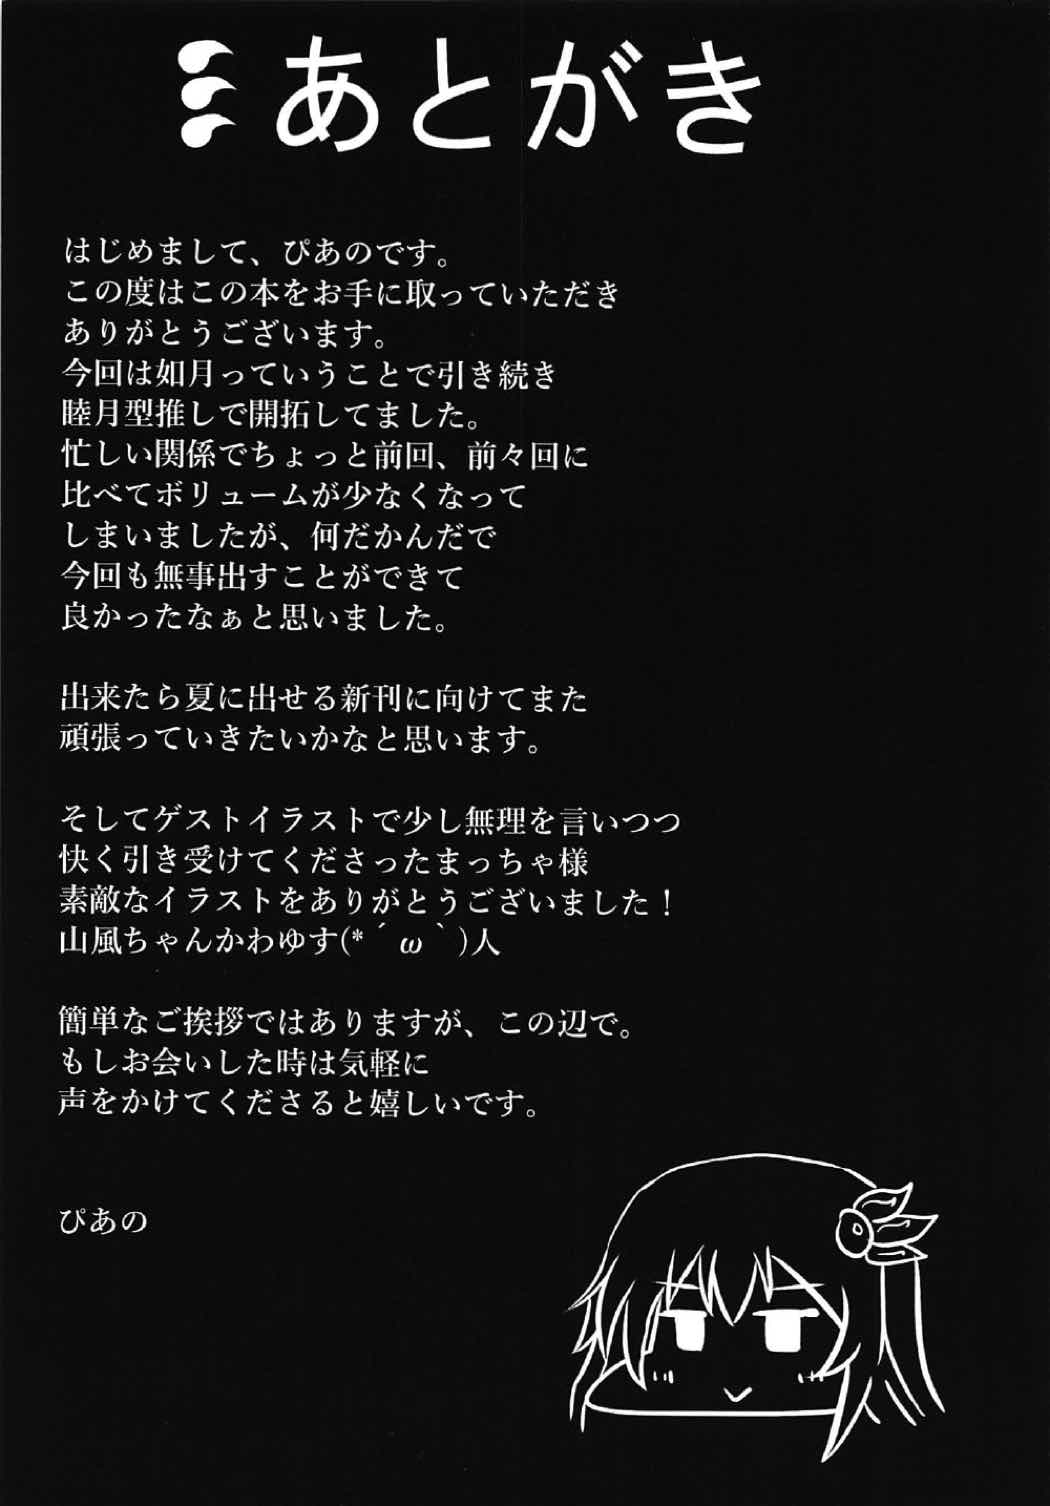 あとがき
はじめまして、ぴあのです。
この度はこの本をお手に取っていただき
ありがとうございます。
今回は如月っていうことで引き続き
睦月型推しで開拓してました。
忙しい関係でちょっと前回、前々回に
比べてボリュームが少なくなって
しまいましたが、何だかんだで
今回も無事出すことができて
良かったなぁと思いました。
出来たら夏に出せる新刊に向けてまた
頑張っていきたいかなと思います。
そしてゲストイラストで少し無理を言いつつ
快く引き受けてくださったまっちゃ様
素敵なイラストをありがとうございました！
山風ちゃんかわゆす(*´ω｀)人
簡単なご挨拶ではありますが、この辺で。
もしお会いした時は気軽に
声をかけてくださると嬉しいです。
ぴあの